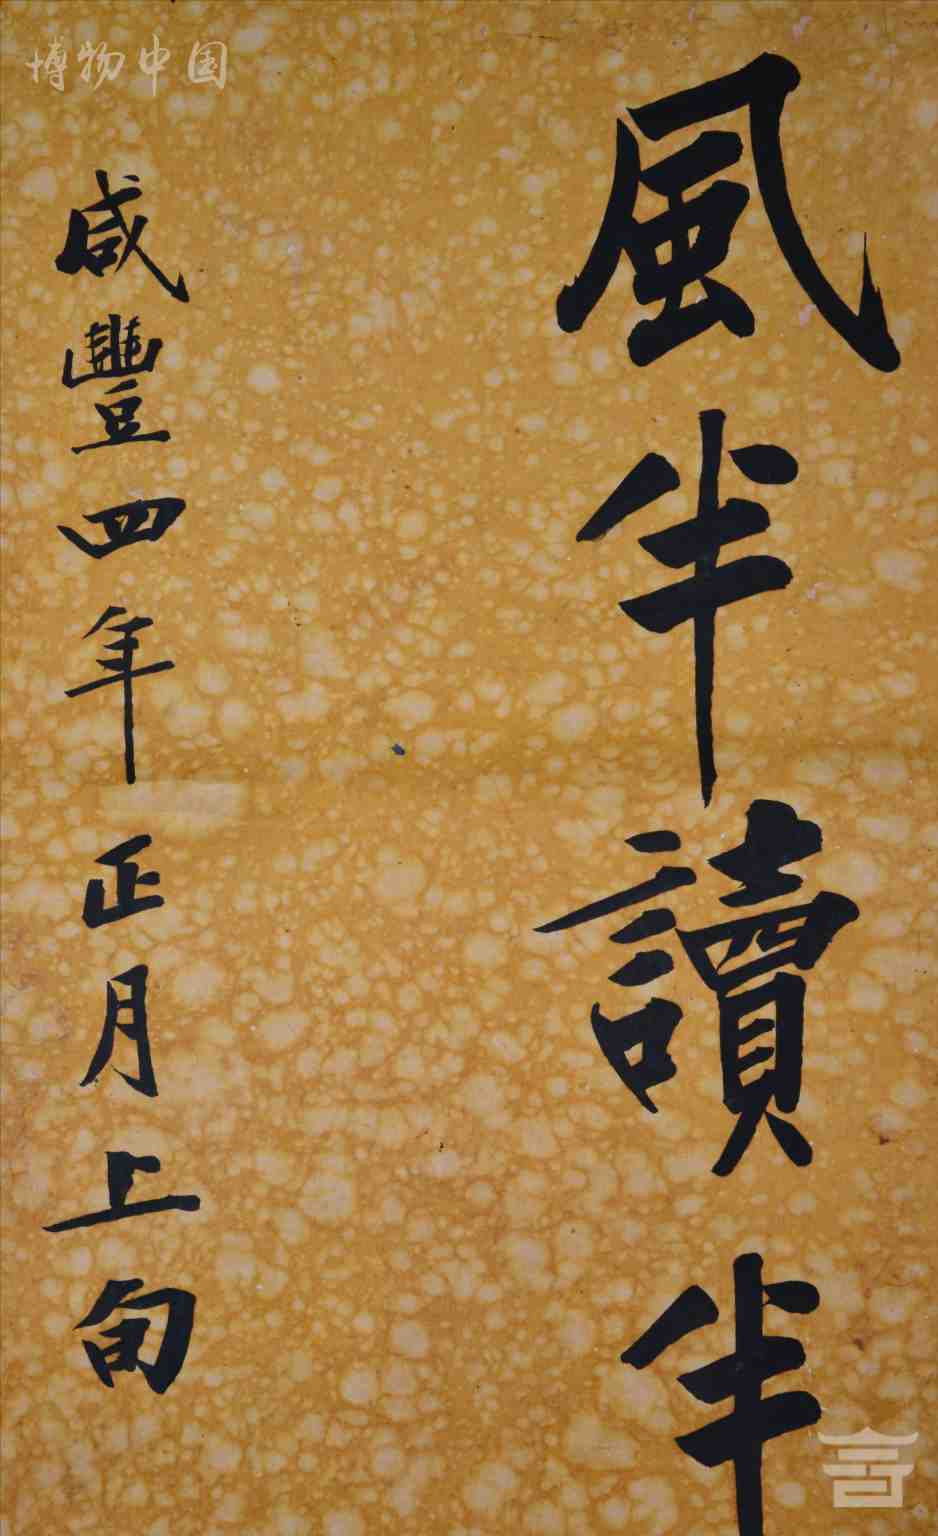 風半讀半
咸豐四年正月上旬
博物中国